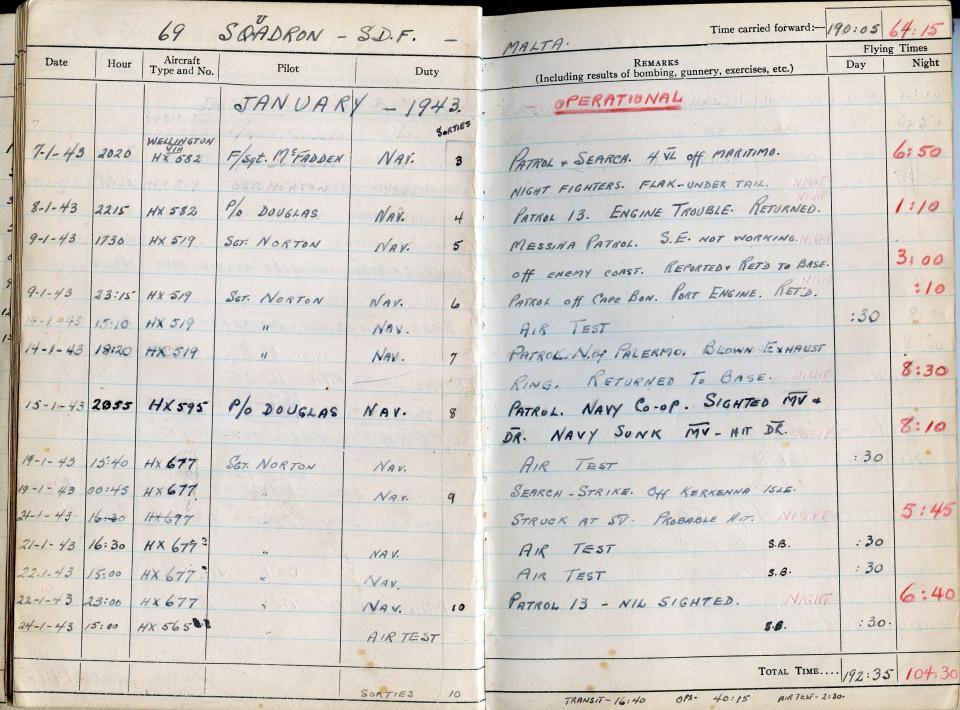 69 SQUADRON - S.D.F. - MALTA.
Time carried forward:— 190:05 64:15
Date Hour Aircraft Type and No. Pilot Duty REMARKS (Including results of bombing, gunnery, exercises, etc.) Flying Times Day Night
JANUARY - 1943. - OPERATIONAL
SORTIES
WELLINGTON VIII
7-1-43 2020 HX 582 F/Sgt. McFADDEN NAV. 3 PATROL & SEARCH. 4 VL off MARITIMO. 6:50
NIGHT FIGHTERS. FLAK-UNDER TAIL. NIGHT
8-1-43 2215 HX 582 P/O DOUGLAS NAV. 4 PATROL 13. ENGINE TROUBLE. RETURNED. NIGHT 1:10
9-1-43 1730 HX 519 SGT. NORTON NAV. 5 MESSINA PATROL. S.E. NOT WORKING. NIGHT
OFF ENEMY COAST. REPORTED & RET'D TO BASE. 3:00
9-1-43 23:15 HX 519 SGT. NORTON NAV. 6 PATROL off CAPE BON. PORT ENGINE. RET'D. :10
14-1-43 15:10 HX 519 " NAV. AIR TEST :30
14-1-43 18:20 HX 519 " NAV. 7 PATROL N. of PALERMO. BLOWN EXHAUST
RING. RETURNED TO BASE. NIGHT 8:30
15-1-43 2055 HX 595 P/O DOUGLAS NAV. 8 PATROL. NAVY CO-OP. SIGHTED MV &
DR. NAVY SUNK MV - HIT DR. NIGHT 8:10
19-1-43 15:40 HX 677 SGT. NORTON NAV. AIR TEST :30
19-1-43 00:45 HX 677 " NAV. 9 SEARCH - STRIKE. Off KERKENNA ISLE.
21-1-43 16:30 HX 697 " STRUCK AT SV. PROBABLE HIT. NIGHT 5:45
21-1-43 16:30 HX 677 " NAV. AIR TEST S.B. :30
22-1-43 15:00 HX 677 " NAV. AIR TEST S.B. :30
22-1-43 23:00 HX 677 " NAV. 10 PATROL 13 - NIL SIGHTED. NIGHT 6:40
24-1-43 15:00 HX 565 AIR TEST S.B. :30.
TOTAL TIME.... 192:35 104:30
SORTIES 10 TRANSIT - 16:40 OPS - 40:15 AIR TEST - 2:30.